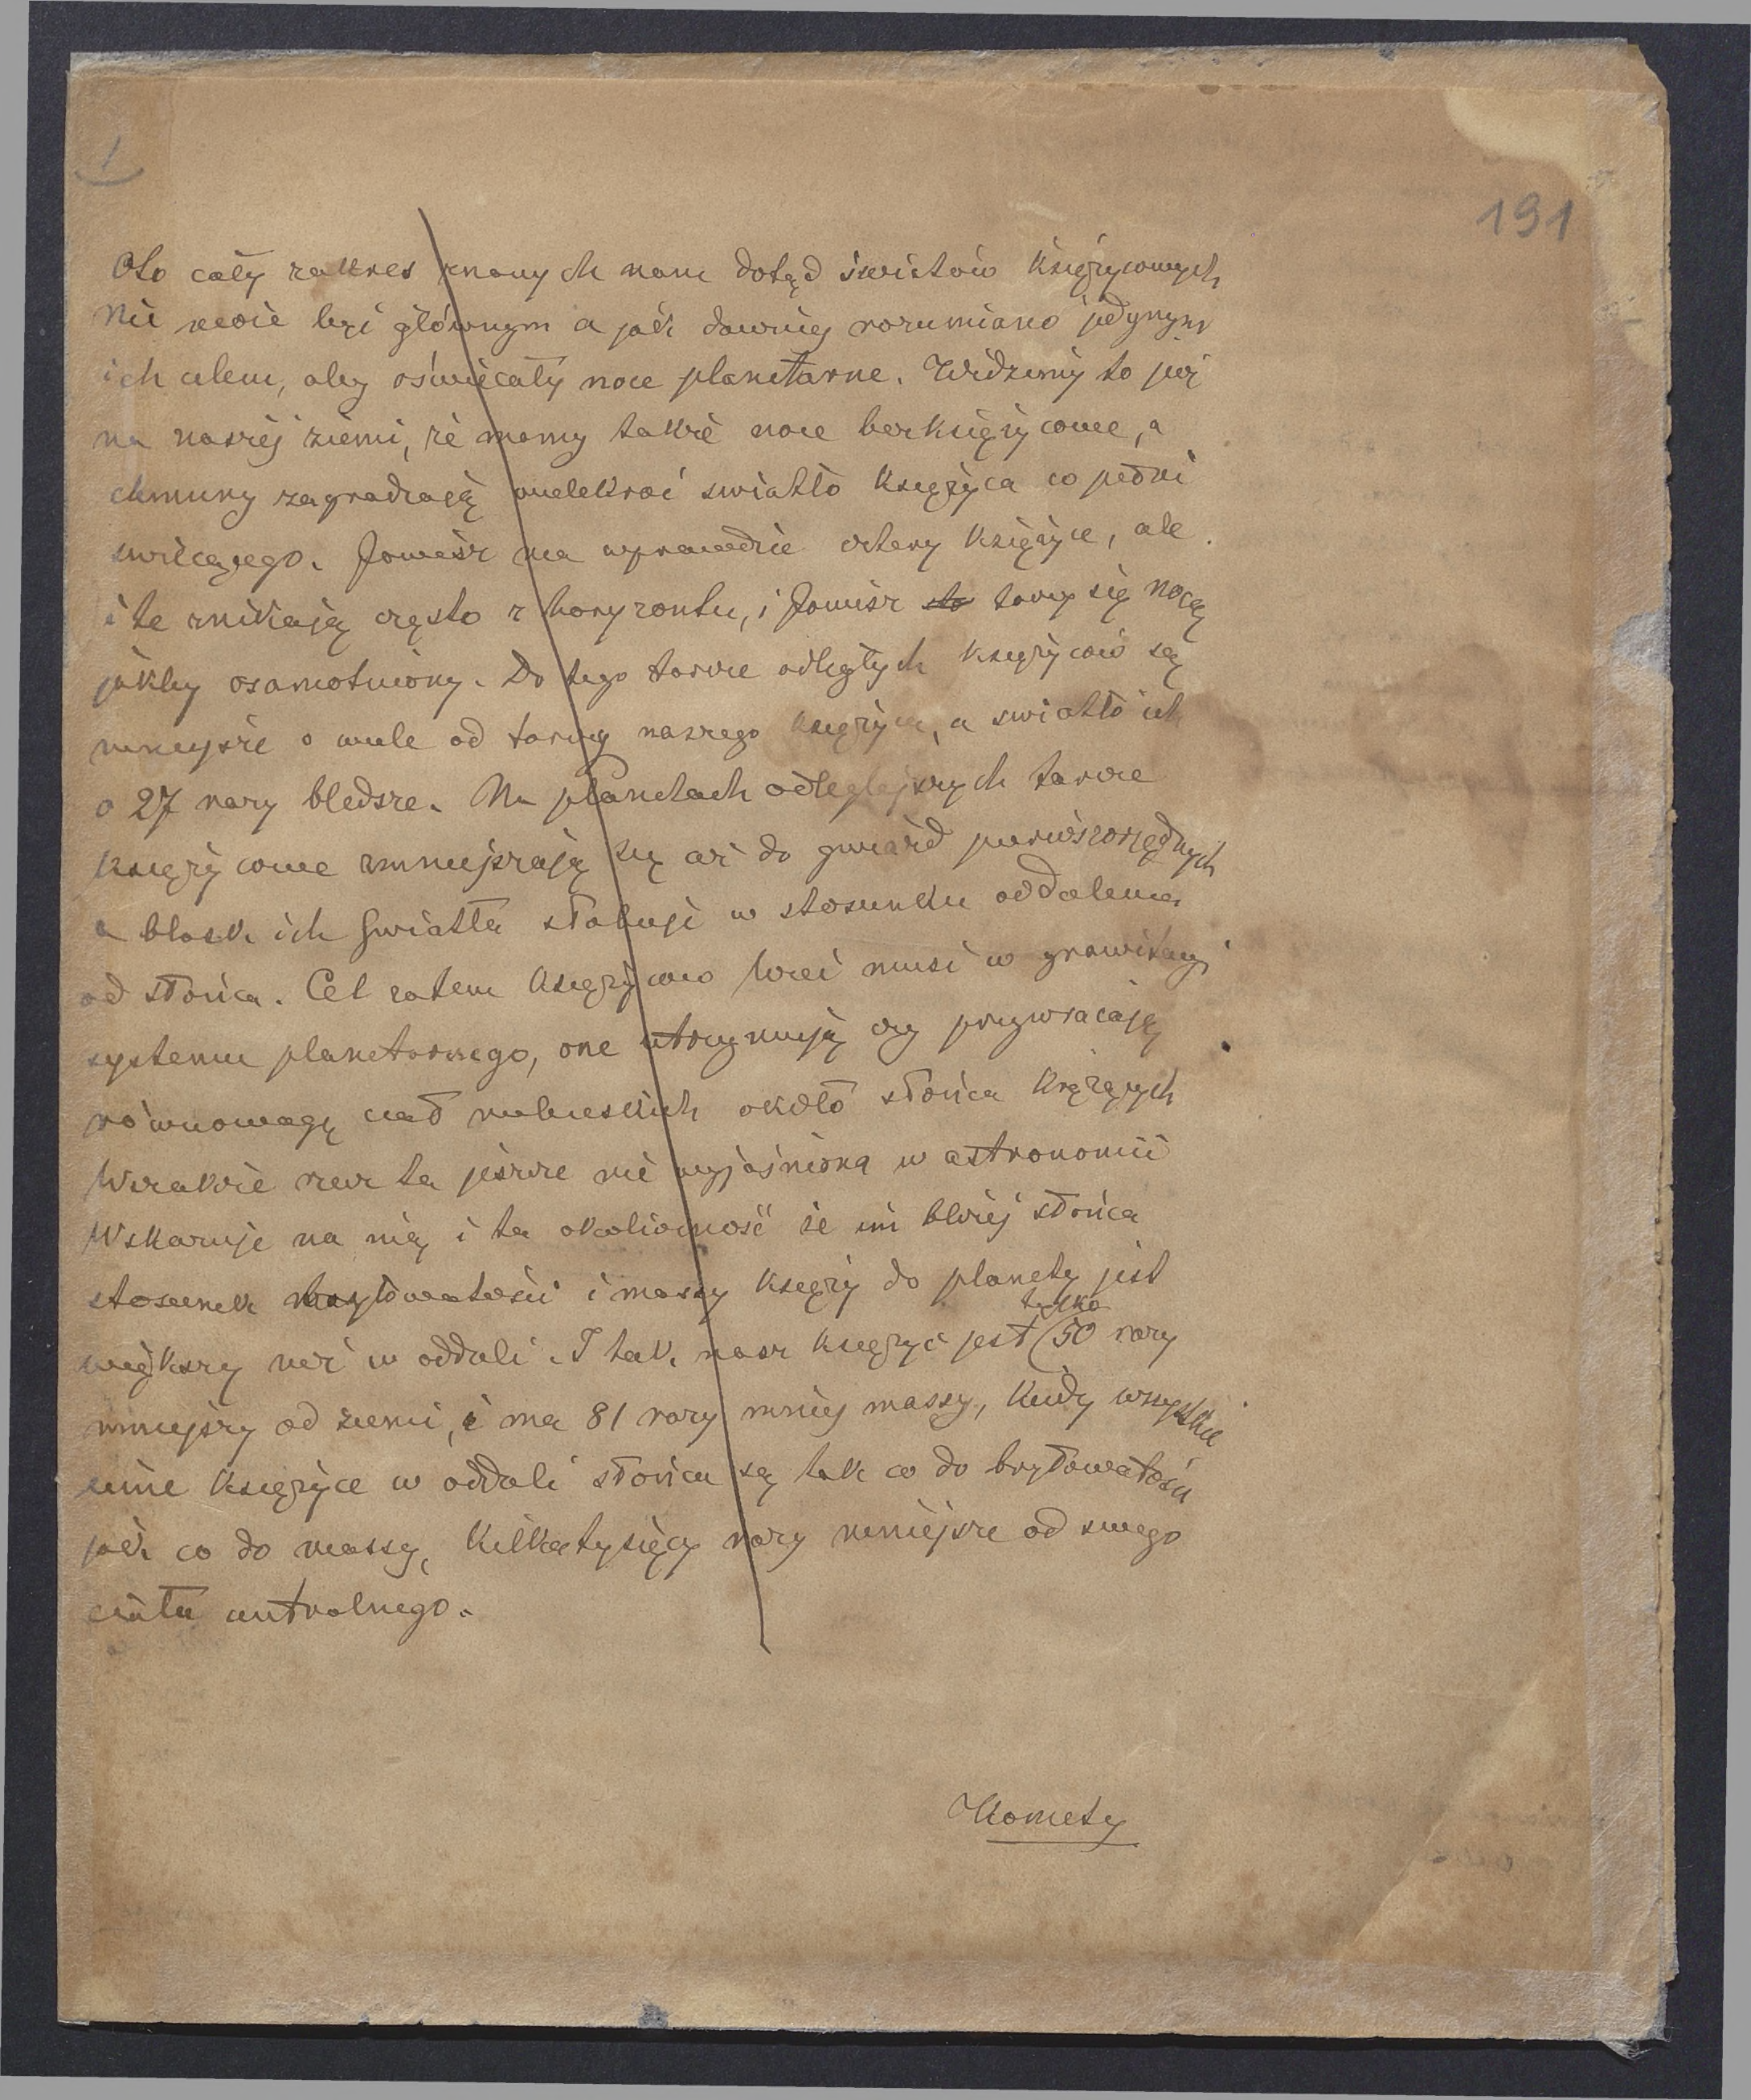 1
191
Oto cały zakres znanych nam dotąd światów księżycowych
Nie może być głównym a jak dawniej rozumiano jedynym
ich celem, aby oświecały noce planetarne. Widzimy to już
na naszéj ziemi, że mamy także noce bezksiężycowe, a
chmury zagradzają wielekroć swiatło księżyca co pełni
swiecącego. Jowisz ma wprawdzie cztery księżyce, ale
i te znikają często z horyzontu, i Jowisz toczy się nocą
jakby osamotniony. Do tego tarcze odległych księżyców są
mniejsze o wiele od tarczy naszego księżyca, a swiatło ich
o 27 razy bledsze. Na planetach odleglejszych tarcze
księżycowe zmniejszają się aż do gwiazd pierwszorzędnych
a blask ich swiatła słabieje w stosunku oddalenia
od słońca. Cel zatem księżyców być musi w grawitacyi
systemu planetarnego, one utrzymują czy przywracają
równowagę ciał niebieskich około słońca krążących
Wszakże rzecz ta jeszcze nie wyjaśniona w astronomii
Wskazuje na nią i ta okoliczność że im bliżej słońca
stosunek bryłowatości i massy księży do planety jest
większy niż w oddali. I tak nasz księżyc jest (50 razy
tylko
mniejszy od ziemi, i ma 81 razy mniej massy, kiedy wszystkie
inne księżyce w oddali słońca są tak co do bryłowatości
jak co do massy, kilkatysięcy razy mniejsze od swego
ciała centralnego.
Komety